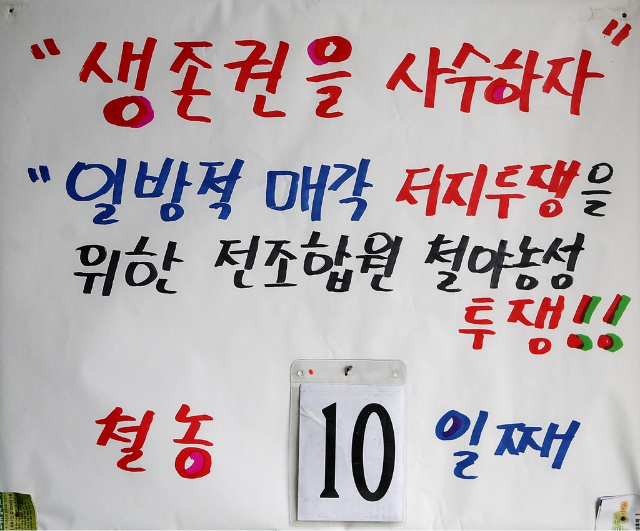 "생존권을 사수하자"
"일방적 매각 저지투쟁을
위한 전조합원 철야농성
투쟁!!
철농 10 일째